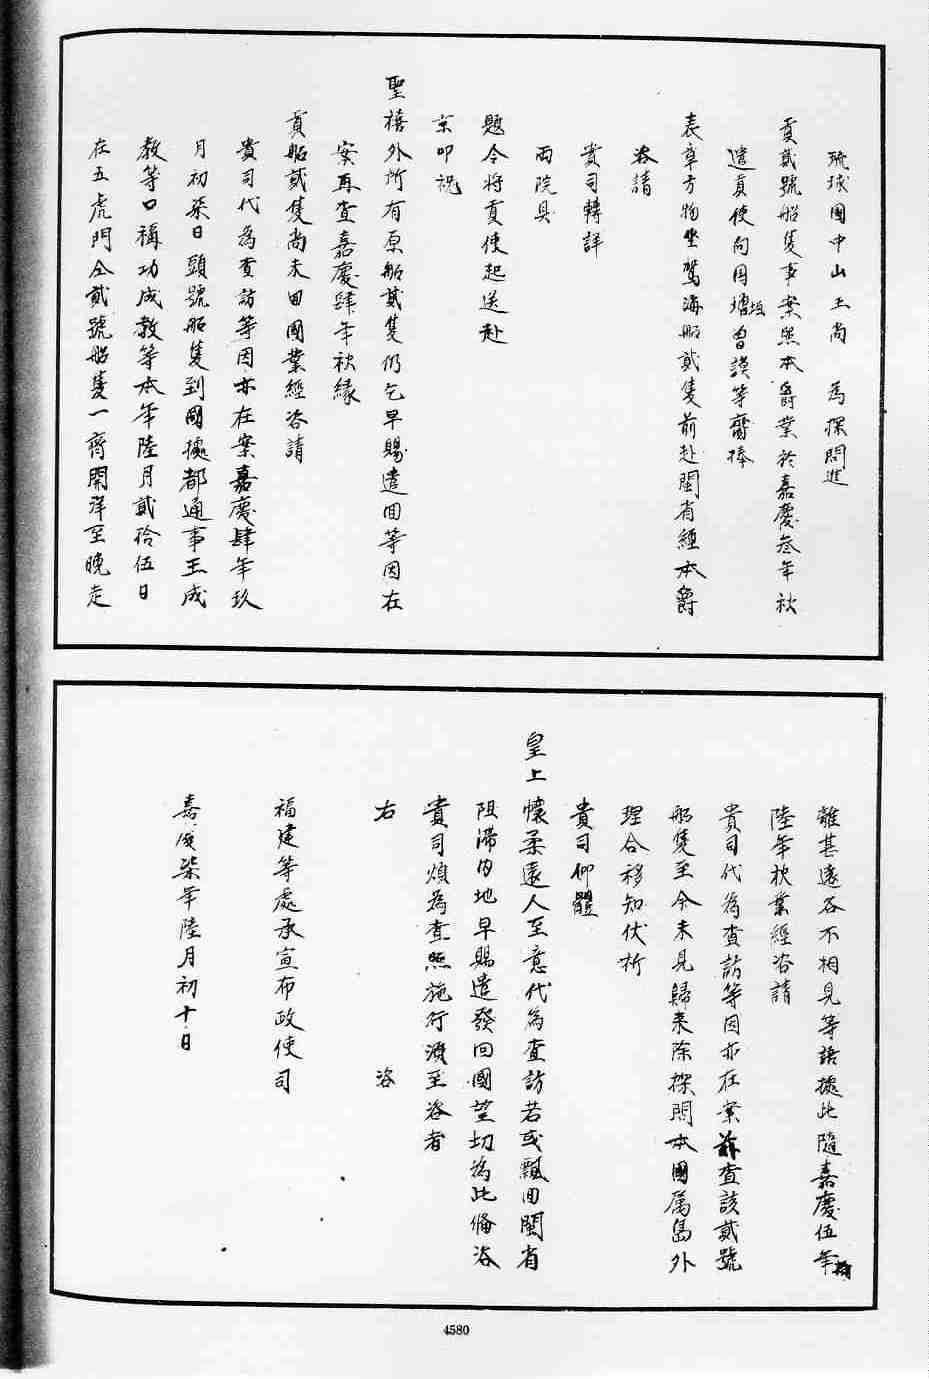 琉球國中山王尚　為探問進
貢貳號船隻事案照本爵業於嘉慶叁年秋
遣貢使向國垣塘曾謨等齎捧
表章方物坐駕海船貳隻前赴閩省經本爵
咨請
貴司轉詳
兩院具
題令將貢使起送赴
京叩祝
聖禧外所有原船貳隻仍乞早賜遣回等因在
案再查嘉慶肆年秋緣
貢船貳隻尚未回國業經咨請
貴司代為查訪等因亦在案嘉慶肆年玖
月初柒日頭號船隻到國據都通事王成
教等口稱功成教等本年陸月貳拾伍日
在五虎門仝貳號船隻一齊開洋至晚走
離甚遠各不相見等語據此隨嘉慶伍年
陸年秋業經咨請
貴司代為查訪等因亦在案茲查該貳號
船隻至今未見歸来除探問本國属島外
理合移知伏祈
貴司仰體
皇上懷柔遠人至意代為查訪若或飄回閩省
阻滯内地早賜遣發回國望切為此俻咨
貴司煩為查照施行湏至咨者
右　　咨
福建等處承宣布政使司
嘉慶柒年陸月初十日
4580